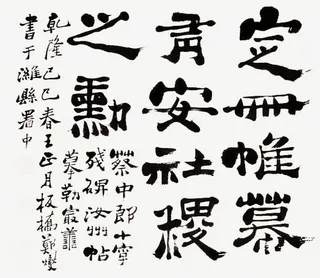 定冊帷幕
有安社稷
之勳
蔡中郎十字
殘碑汝州帖
摹勒最善
乾隆己巳春王正月板橋鄭燮
書于濰縣署中